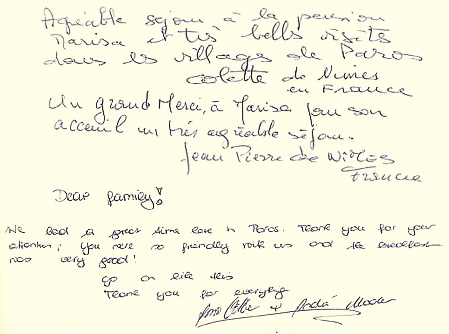 Agréable séjour à la pension
Marisa et très bells visites
dans les villages de Paros
Colette de Nimes
en France
Un Grand Merci, à Marisa pour son
acceuil un très agréable séjour.
Jean Pierre de Nimes
France
Dear family!
We had a great time here in Paros. Thank you for your
attention; you were so friendly with us and the breakfast
was very good!
Go on like this
Thank you for everything
André